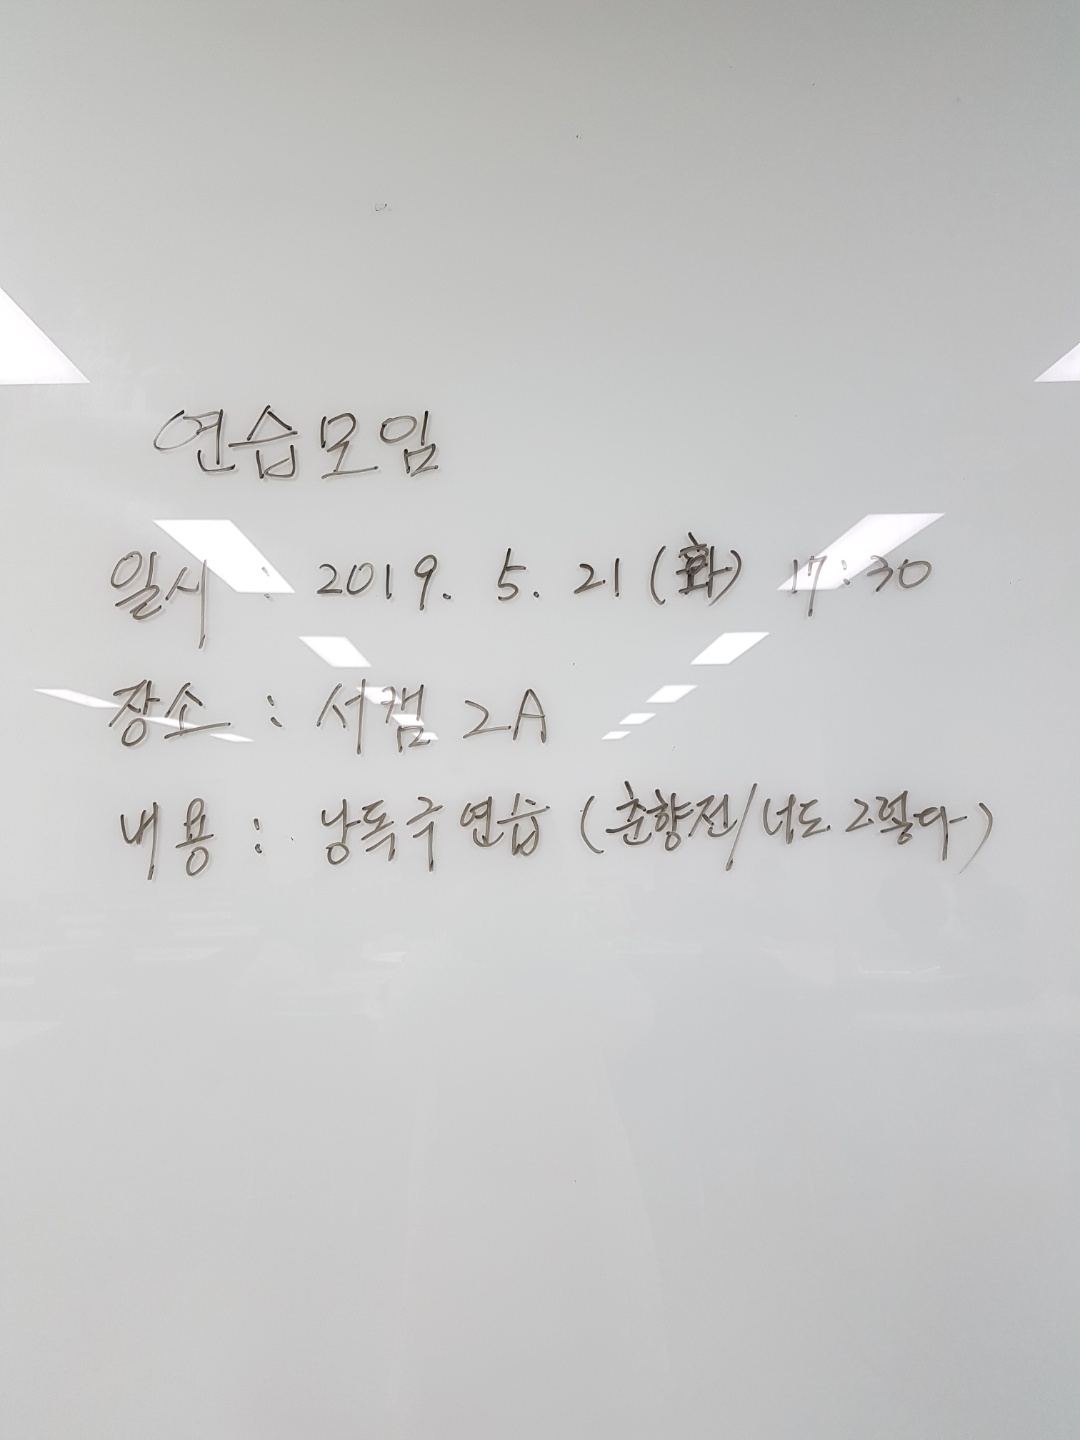 연습모임
일시 : 2019. 5. 21 (화) 17:30
장소 : 서캠 2A
내용 : 낭독극 연습 (춘향전/너도 그렇다)